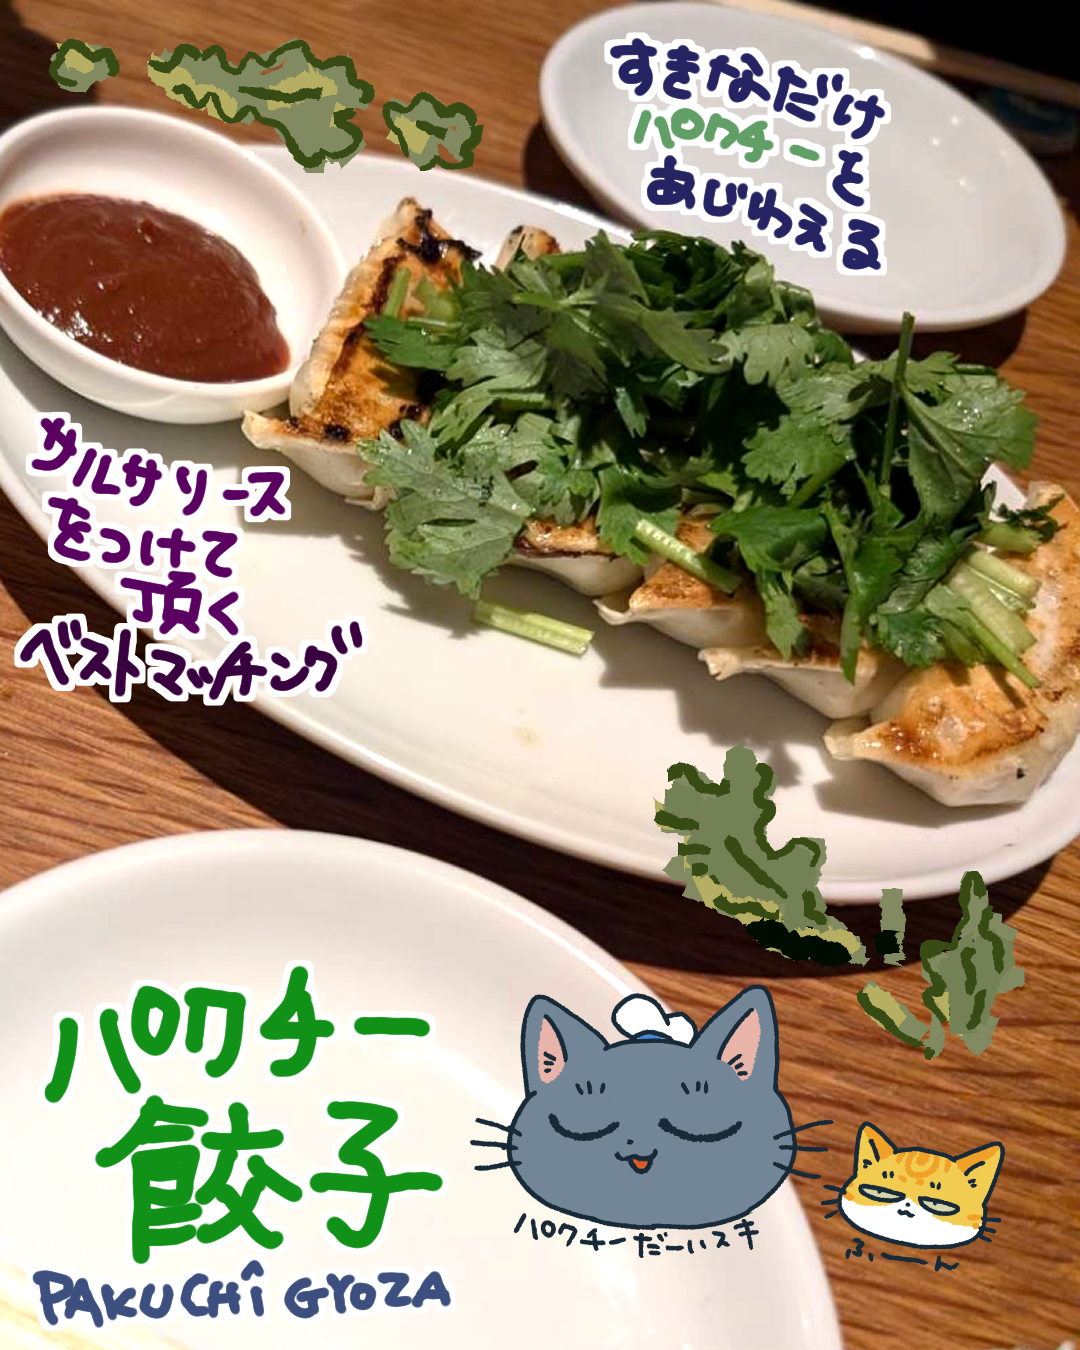 すきなだけ
パクチーを
あじわえる
サルサソース
をつけて
頂く
ベストマッチング
パクチー
餃子
PAKUCHî GYOZA
パクチーだーいスキ
ふーん